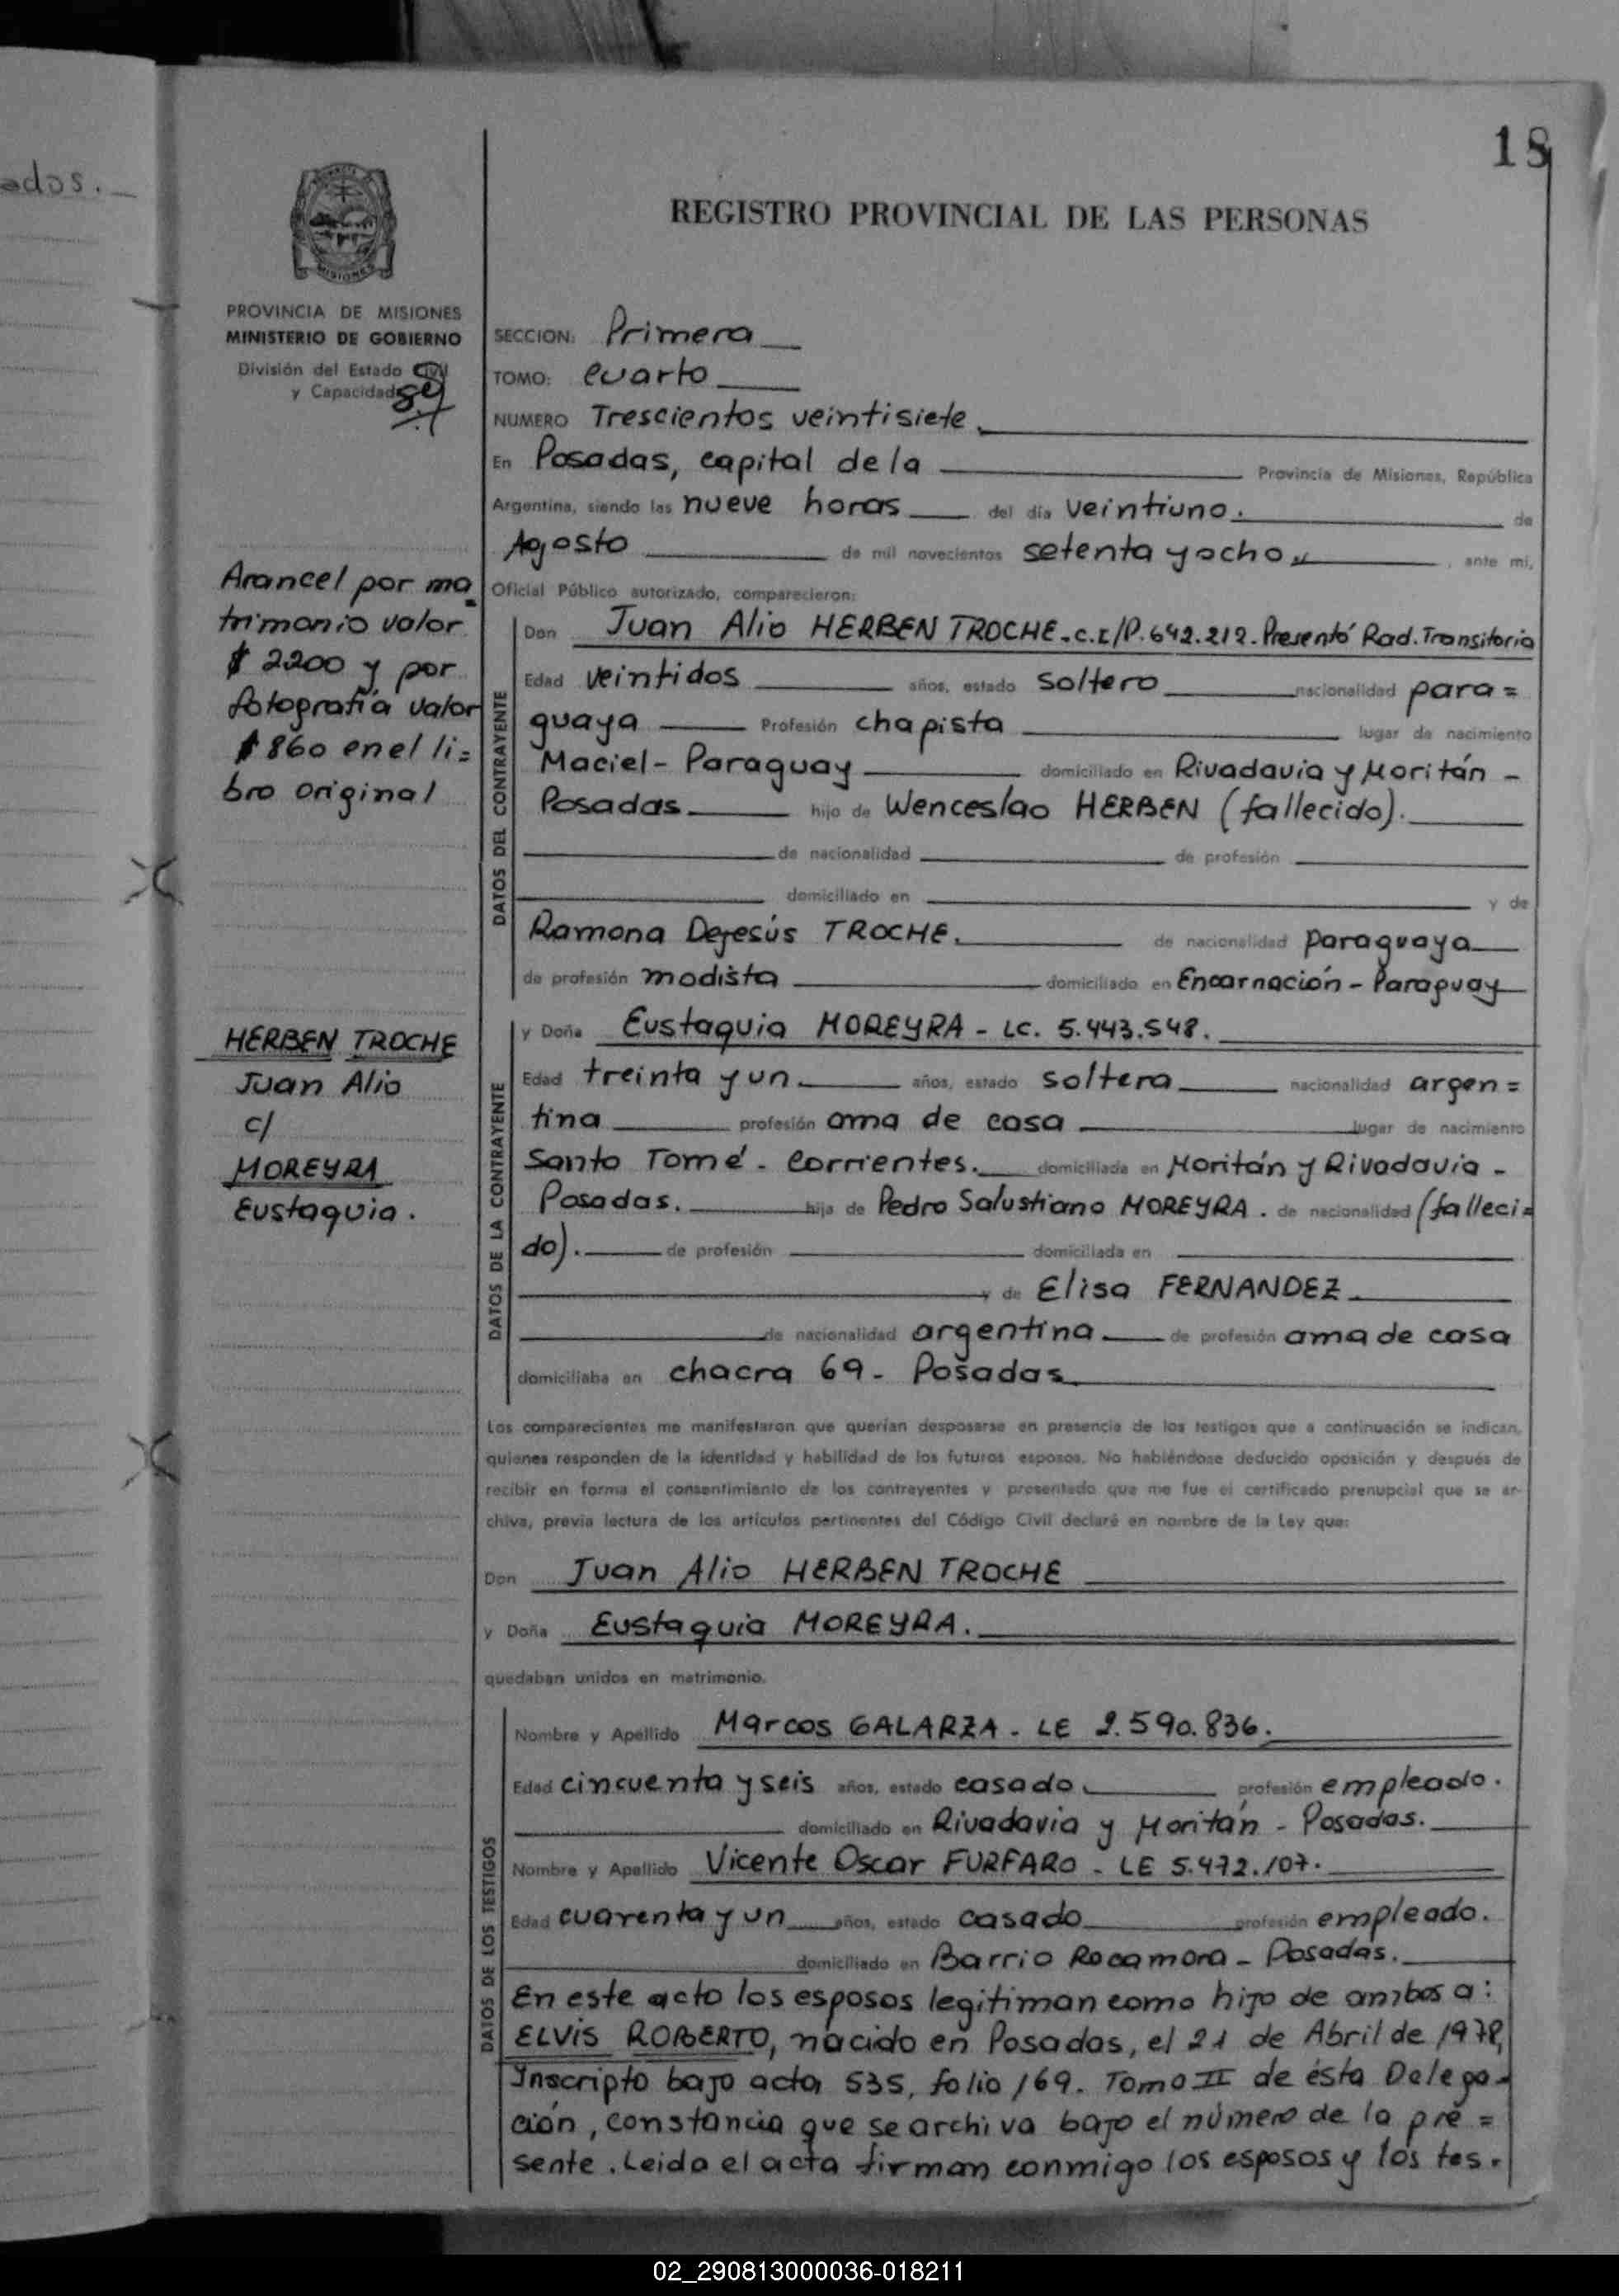 18
ados.
REGISTRO PROVINCIAL DE LAS PERSONAS
MISIONES
PROVINCIA DE MISIONES
MINISTERIO DE GOBIERNO
División del Estado Civil
y Capacidad
SECCION: Primera
TOMO: cuarto
NUMERO Trescientos veintisiete.
En Posadas, capital de la Provincia de Misiones, República
Argentina, siendo las nueve horas del día veintiuno. de
Agosto de mil novecientos setenta y ocho, ante mi,
Oficial Público autorizado, comparecieron:
Arancel por ma
trimonio valor
$ 2200 y por
fotografía valor
$ 860 en el li=
bro original
DATOS DEL CONTRAYENTE
Don Juan Alio HERBEN TROCHE. C.I/P. 642.212. Presentó Rad. Transitoria
Edad veintidos años, estado soltero nacionalidad para=
guaya Profesión chapista lugar de nacimiento
Maciel - Paraguay domiciliado en Rivadavia y Moritán -
Posadas. hijo de Wenceslao HERBEN (fallecido).
de nacionalidad de profesión
domiciliado en y de
Ramona Dejesús TROCHE. de nacionalidad paraguaya
de profesión modista domiciliado en Encarnación - Paraguay
HERBEN TROCHE
Juan Alio
c/
MOREYRA
Eustaquia.
DATOS DE LA CONTRAYENTE
y Doña Eustaquia MOREYRA - LC. 5.443.548.
Edad treinta y un años, estado soltera nacionalidad argen=
tina profesión ama de casa lugar de nacimiento
Santo Tomé - Corrientes. domiciliada en Moritán y Rivadavia -
Posadas. hija de Pedro Salustiano MOREYRA. de nacionalidad (falleci=
do). de profesión domiciliada en
y de Elisa FERNANDEZ
de nacionalidad argentina de profesión ama de casa
domiciliaba en chacra 69 - Posadas
Los comparecientes me manifestaron que querían desposarse en presencia de los testigos que a continuación se indican,
quienes responden de la identidad y habilidad de los futuros esposos. No habiéndose deducido oposición y después de
recibir en forma el consentimiento de los contrayentes y presentado que me fue el certificado prenupcial que se ar-
chiva, previa lectura de los artículos pertinentes del Código Civil declaré en nombre de la Ley que:
Don Juan Alio HERBEN TROCHE
y Doña Eustaquia MOREYRA.
quedaban unidos en matrimonio.
DATOS DE LOS TESTIGOS
Nombre y Apellido Marcos GALARZA - LE 2.590.836.
Edad cincuenta y seis años, estado casado profesión empleado.
domiciliado en Rivadavia y Moritán - Posadas.
Nombre y Apellido Vicente Oscar FURFARO - LE 5.472.107.
Edad cuarenta y un años, estado casado profesión empleado.
domiciliado en Barrio Rocamora - Posadas.
En este acto los esposos legitiman como hijo de ambos a:
ELVIS ROBERTO, nacido en Posadas, el 21 de Abril de 1978,
Inscripto bajo acta 535, folio 169. Tomo II de ésta Delega-
ción, constancia que se archiva bajo el número de la pre=
sente. Leida el acta firman conmigo los esposos y los tes.
02_290813000036-018211